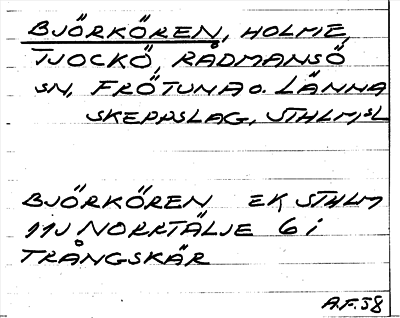 BJÖRKÖREN, HOLME,
TJOCKÖ, RÅDMANSÖ
SN, FRÖTUNA O. LÄNNA
SKEPPSLAG, STHLM,SL
BJÖRKÖREN EK STHLM
11J NORRTÄLJE 6 i
TRÅNGSKÄR
A.F.58